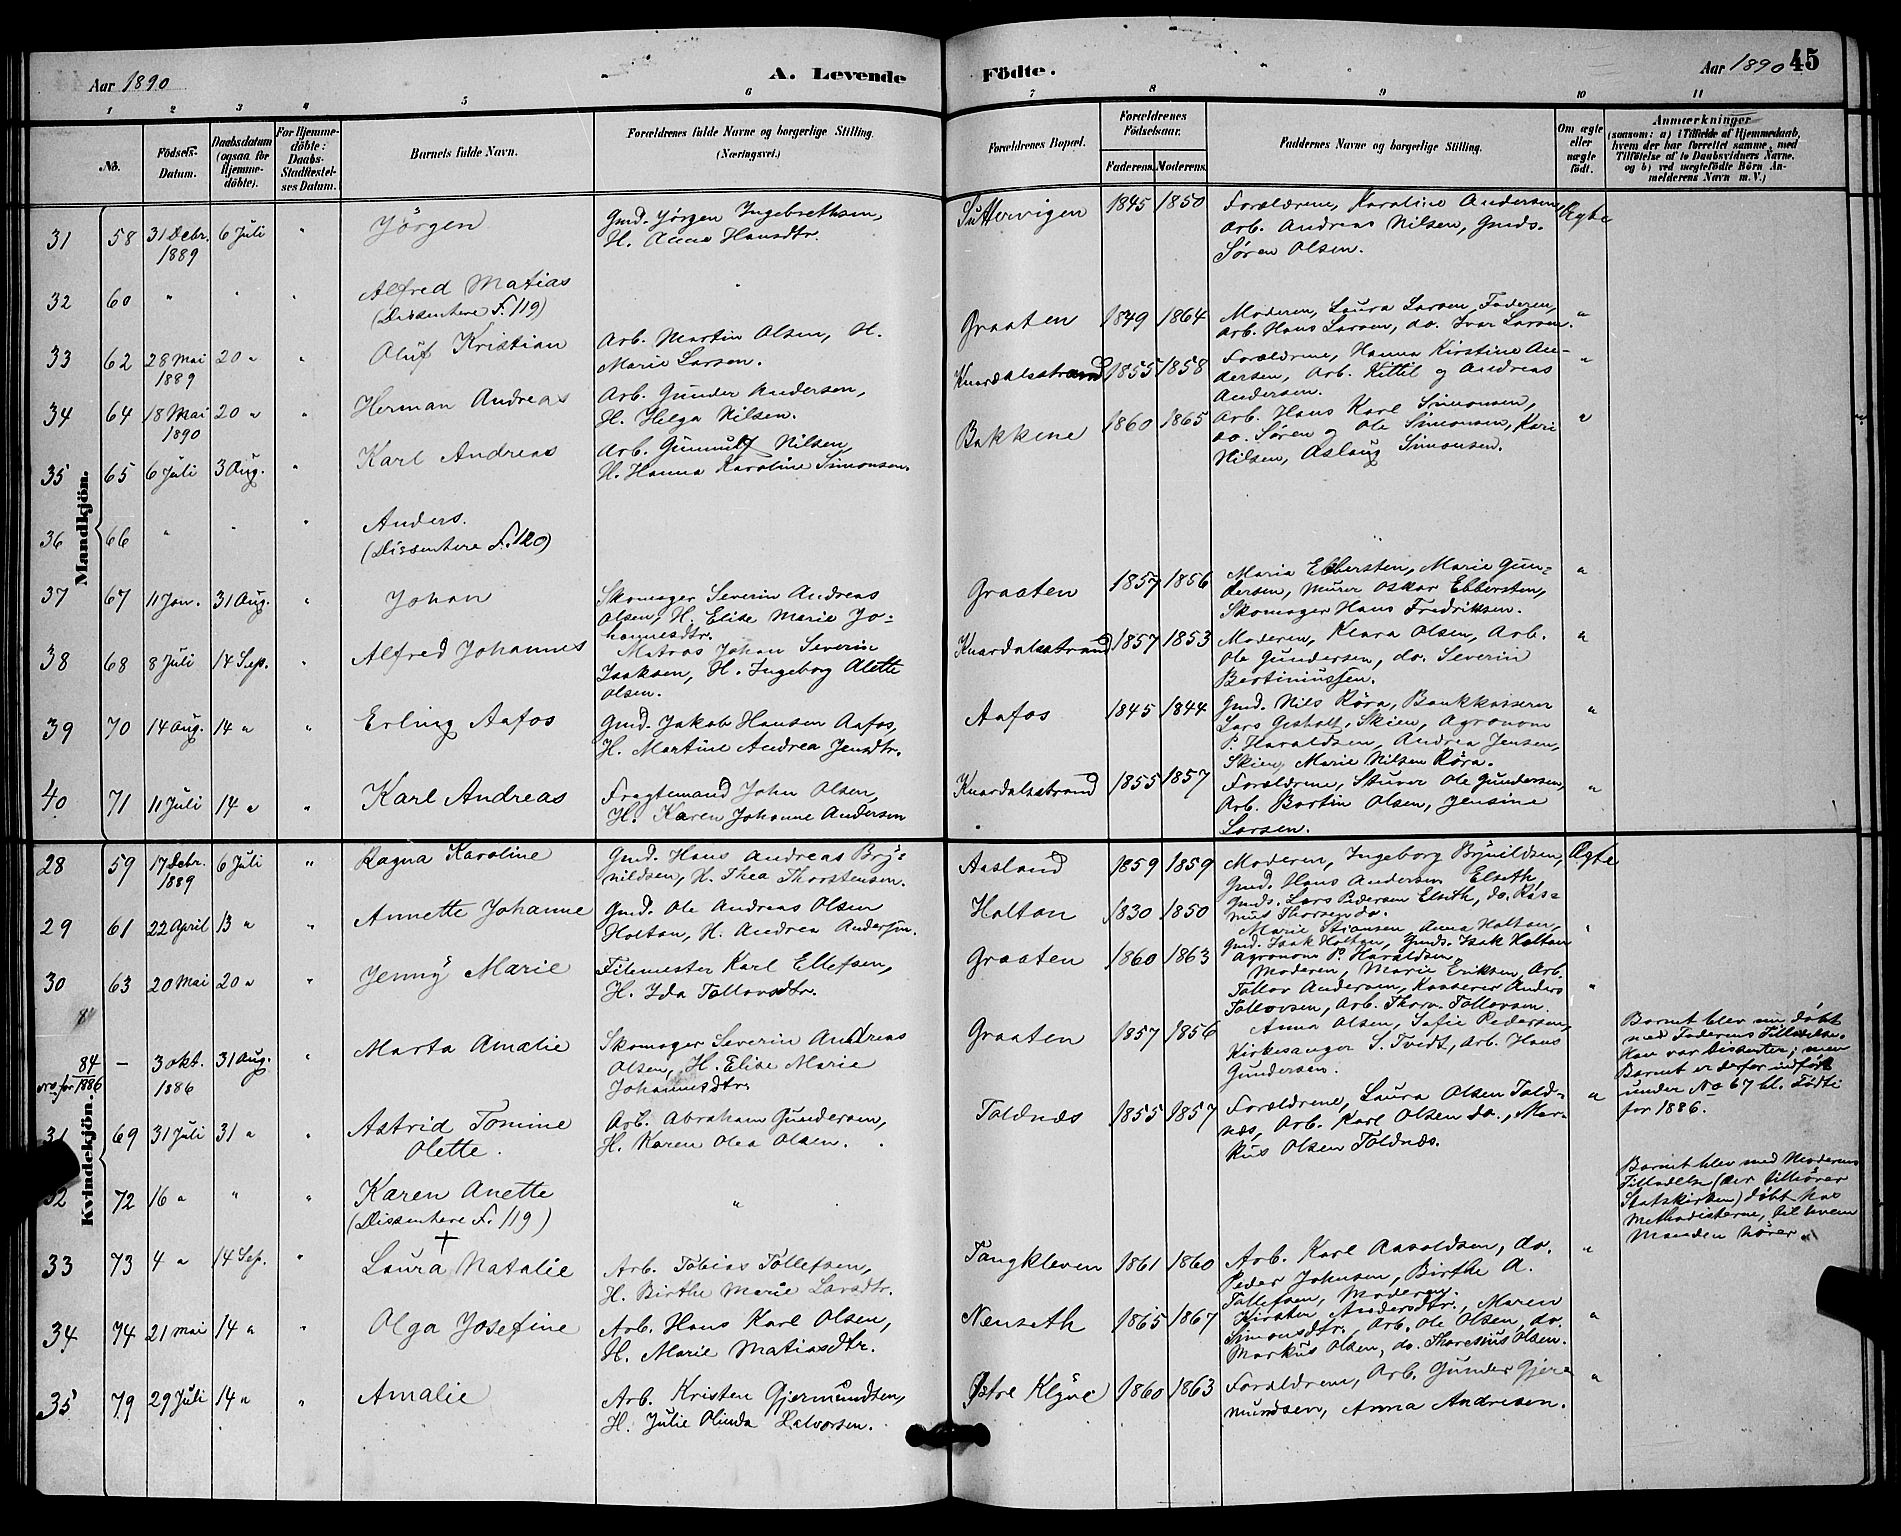 Aar 1890
A. Levende
Födte.
Aar 1890
45
1
2
3
4
5
6
7
8
9
10
11
No.
Födsels-
Datum.
Daabsdatum
(ogsaa for
Hjemme-
döbte).
For Hjemme-
döbte:
Daabs-
Stadfæstel-
ses Datum.
Barnets fulde Navn.
Forældrenes fulde Navne og borgerlige Stilling.
(Næringsvei.)
Forældrenes Bopæl.
Forældrenes
Födselsaar.
Faderens.
Moderens.
Faddernes Navne og borgerlige Stilling.
Om ægte
eller
uægte
födt.
Anmærkninger
(saasom: a) i Tilfælde af Hjemmedaab,
hvem der har forrettet samme, med
Tilföielse af to Daabsvidners Navne,
og b) ved uægtefödte Börn An-
melderens Navn m. V.)
Mandkjön.
31 58 31 Debr. 6 Juli " Jörgen Gmd. Jørgen Ingebrethsen, Suttervigen 1845 1850 Forældrene, Karoline Andersen, Ægte
1889 H. Anne Hansdtr. Arb. Andreas Nilsen, Gmds.
Søren Olsen.
32 60 " " " Alfred Matias "
(Dissentere F. 119)
33 62 28 Mai 20 " " Oluf Kristian Arb. Martin Olsen, H. Graaten 1849 1864 Moderen, Laura Larsen, Faderen, "
1889 Marie Larsen. Arb. Hans Larsen, do. Ivar Larsen.
34 64 18 Mai 20 " " Herman Andreas Arb. Gunder Andersen, Knardalsstrand 1855 1858 Forældrene, Hanna Kirstine An- "
1890 H. Helga Nilsen. dersen, Arb. Kittil og Andreas
Andersen.
35 65 6 Juli 3 Aug. " Karl Andreas Arb. Gunnulf Nilsen Bakkene 1860 1865 Arb. Hans Karl Simonsen, "
H. Hanna Karoline Simonsen. do. Søren og Ole Simonsen, Kari
Nilsen, Aslaug Simonsen.
36 66 " " " Anders.
(Dissentere F. 120)
37 67 11 Jan. 31 Aug. " Johan Skomager Severin Andreas Graaten 1857 1856 Maria Ebbersten, Marie Gun- "
Olsen, H. Elise Marie Jo- dersen, Murer Oskar Ebbersten,
hannesdtr. Skomager Hans Fredriksen.
38 68 8 Juli 14 Sep. " Alfred Johannes Matros Johan Severin Knardalsstrand 1857 1853 Moderen, Klara Olsen, Arb. "
Isaksen, H. Ingeborg Alette Ole Gundersen, do. Severin
Olsen. Bertiniussen.
39 70 14 Aug. 14 " " Erling Aafos Gmd. Jakob Hansen Aafos, Aafos 1845 1844 Gmd. Nils Røra, Bankkasserer "
H. Martine Andrea Jensdtr. Lars Gisholt, Skien, Agronom
P. Haraldsen, Andrea Jensen,
Skien, Marie Nilsen Røra.
40 71 11 Juli 14 " " Karl Andreas Fragtemand John Olsen, Knardalsstrand 1855 1857 Forældrene, Stuver Ole Gundersen, "
H. Karen Johanne Andersen Arb. Bertin Olsen, Jensine
Larsen.
Kvindekjön.
28 59 17 Debr. 6 Juli " Ragna Karoline Gmd. Hans Andreas Bry- Aasland 1859 1859 Moderen, Ingeborg Brynildsen, Ægte
1889 nildsen, H. Thea Thorstensen. Gmd. Hans Andersen Elseth,
Gmds. Lars Pedersen Elseth, do. Ras-
mus Thorsen do.
29 61 22 April 13 " " Annette Johanne Gmd. Ole Andreas Olsen Holtan 1830 1850 Marie Stiansen, Anna Holtan, "
Holtan, H. Andrea Andersen. Gmd. Isak Holtan, Gmds. Isak Holtan
Agronom P. Haraldsen.
30 63 20 Mai 20 " " Jenny Marie Filemester Karl Ellefsen, Graaten 1860 1863 Moderen, Marie Eriksen, Arb. "
H. Ida Tollovsdtr. Tollov Andersen, Kasserer Anders
Tollovsen, Arb. Thorv. Tollovsen.
84 No. for 1886 — 3 Okt. 31 Aug. " Marta Amalie Skomager Severin Andreas Graaten 1857 1856 Anna Olsen, Sofie Pedersen,
1886 Olsen, H. Elise Marie Kirkesanger S. Tvidt, Arb. Hans
Johannesdtr. Gundersen.
Barnet blev nu døbt
med Faderens Tilladelse.
Han var dissenter; men
Barnet er derfor indført
under No 67 bl. Fødte
for 1886.
31 69 31 Juli 31 " " Astrid Tomine Arb. Abraham Gundersen, Toldnæs 1855 1857 Forældrene, Laura Olsen Told- "
Olette. H. Karen Olea Olsen. næs, Arb. Karl Olsen do., Mar-
kus Olsen Toldnæs.
32 72 16 " " " Karen Anette "
(Dissentere F. 119)
Barnet blev med Moderens
Tilladelse (der tilhører
Statskirken) døbt hos
Methodisterne, til hvem
Manden hører.
33 73 4 " 14 Sep. " Laura Natalie Arb. Tobias Tollefsen, Tangkleven 1861 1860 Arb. Karl Aasoldsen, do. "
H. Birthe Marie Larsdtr. Peder Johnsen, Birthe A.
Tollefsen, Moderen.
34 74 21 Mai 14 " " Olga Josefine Arb. Hans Karl Olsen, Nenseth 1865 1867 Kirsten Andersdtr., Maren "
H. Marie Matiasdtr. Simonsdtr., Arb. Ole Olsen, do.
Markus Olsen, do. Thoresius Olsen.
35 79 29 Juli 14 " " Amalie Arb. Kristen Gjermundsen, Østre Klyve 1860 1863 Forældrene, Arb. Gunder Gjer- "
H. Julie Olinda Halvorsen. mundsen, Anna Andresen.